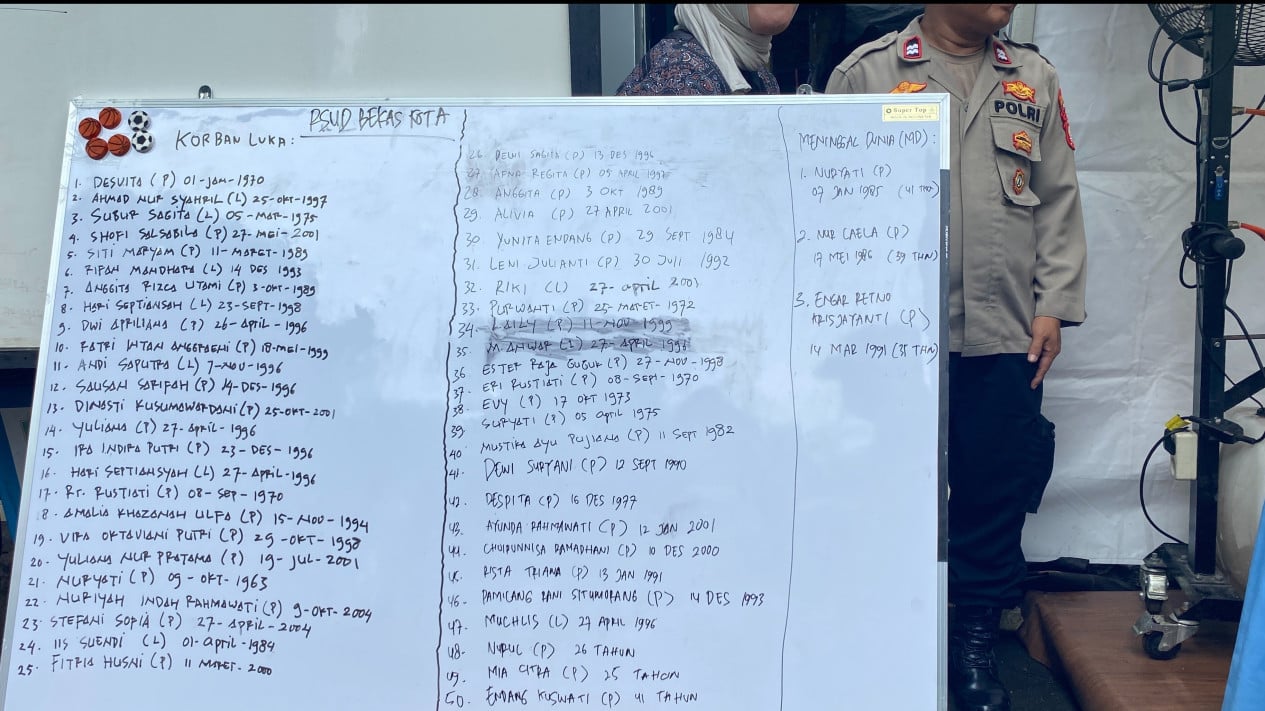 RSUD BEKASI KOTA
KORBAN LUKA :
1. DESVITA (P) 01-JAN-1970
2. AHMAD NUR SYAHRIL (L) 25-OKT-1997
3. SUBUR SAGITA (L) 05-MAR-1975
4. SHOFI SALSABILA (P) 27-MEI-2001
5. SITI MARYAM (P) 11-MARET-1989
6. RIFAN MANDHARA (L) 14 DES 1993
7. ANGGITA RIZCA UTAMI (P) 3-OKT-1989
8. HARI SEPTIANSAH (L) 23-SEPT-1998
9. DWI APRILIANA (P) 26-APRIL-1996
10. RATRI INTAN ANGGRAENI (P) 18-MEI-1999
11. ANDI SAPUTRA (L) 7-NOV-1996
12. SAUSAN SARIFAH (P) 14-DES-1996
13. DINASTI KUSUMAWARDANI (P) 25-OKT-2001
14. YULIANA (P) 27-APRIL-1996
15. IRA INDIRA PUTRI (P) 23-DES-1996
16. HARI SEPTIANSYAH (L) 27-APRIL-1996
17. Rr. RUSTIATI (P) 08-SEP-1970
18. AMALIA KHAZANAH ULFA (P) 15-NOV-1994
19. VIRA OKTAVIANI PUTRI (P) 29-OKT-1998
20. YULIANA NUR PRATAMA (P) 19-JUL-2001
21. NURYATI (P) 09-OKT-1963
22. NURIYAH INDAH RAHMAWATI (P) 9-OKT-2004
23. STEFANI SOPIA (P) 27-APRIL-2004
24. IIS SUENDI (L) 01-APRIL-1984
25. FITRIA HUSNI (P) 11 MARET-2000
26. DEWI SAGITA (P) 13 DES 1996
27. AFNA REGITA (P) 05 APRIL 1997
28. ANGGITA (P) 3 OKT 1989
29. ALIVIA (P) 27 APRIL 2001
30. YUNITA ENDANG (P) 29 SEPT 1984
31. LENI JULIANTI (P) 30 JULI 1992
32. RIKI (L) 27-April 2003
33. PURWANTI (P) 25-MARET-1972
34. LAILY (P) 11-NOV-1999
35. M. ANWAR (L) 27-APRIL 1996
36 ESTER RAJA GUGUK (P) 27-NOV-1998
37. ERI RUSTIATI (P) 08-SEPT-1970
38. EVY (P) 17 OKT 1973
39. SURYATI (P) 05 April 1975
40. MUSTIKA AYU PUJIANA (P) 11 SEPT 1982
41. DEWI SURYANI (P) 12 SEPT 1990
42. DESPITA (P) 16 DES 1977
43. AYUNDA RAHMAWATI (P) 12 JAN 2001
44. CHOIRUNNISA RAMADHANI (P) 10 DES 2000
45. RISTA TRIANA (P) 13 JAN 1991
46. PAMILANG RANI SITUMORANG (P) 14 DES 1993
47. MUCHLIS (L) 27 APRIL 1996
48. NURUL (P) 26 TAHUN
49. MIA CITRA (P) 25 TAHUN
50. ENDANG KUSWATI (P) 41 TAHUN
Super Top
MENINGGAL DUNIA (MD) :
1. NURYATI (P)
07 JAN 1985 (41 THN)
2. NUR LAELA (P)
17 MEI 1986 (39 THN)
3. ENGAR RETNO
KRISJAYANTI (P)
14 MAR 1991 (35 THN)
POLRI